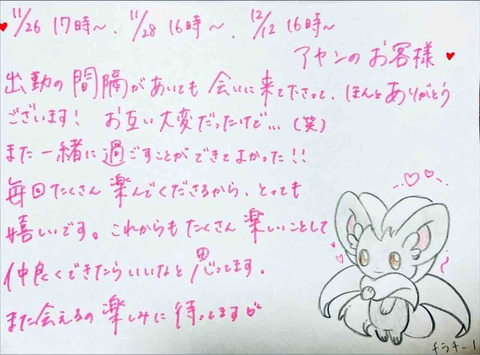 ♥11/26 17時〜、11/28 16時〜、12/12 16時〜
アヤンのお客様♥
出勤の間隔があいても会いに来て下さって、ほんとありがとう
ございます! お互い大変だったけど…(笑)
また一緒に過ごすことができてよかった!!
毎回たくさん楽んでくださるから、とっても
嬉しいです。これからもたくさん楽しいことして
仲良くできたらいいなと思ってます。
また会えるの楽しみに待ってます♡
チラチーノ